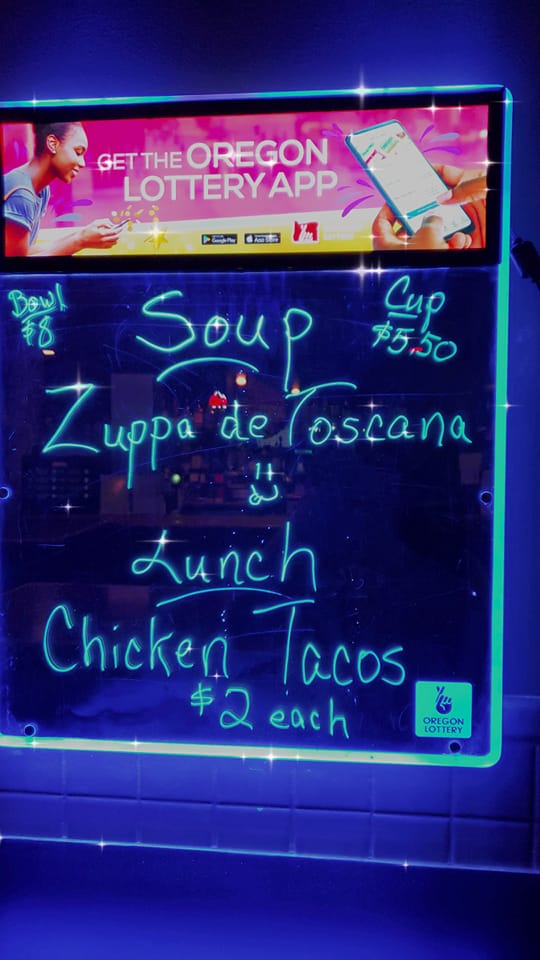 GET THE OREGON
LOTTERY APP
Google Play
App Store
Bowl
$8
Soup
Cup
$5.50
Zuppa de Toscana
Lunch
Chicken Tacos
$2 each
OREGON
LOTTERY